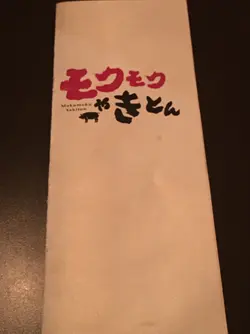 モクモク
Mokumoku
Yakiton
やきとん